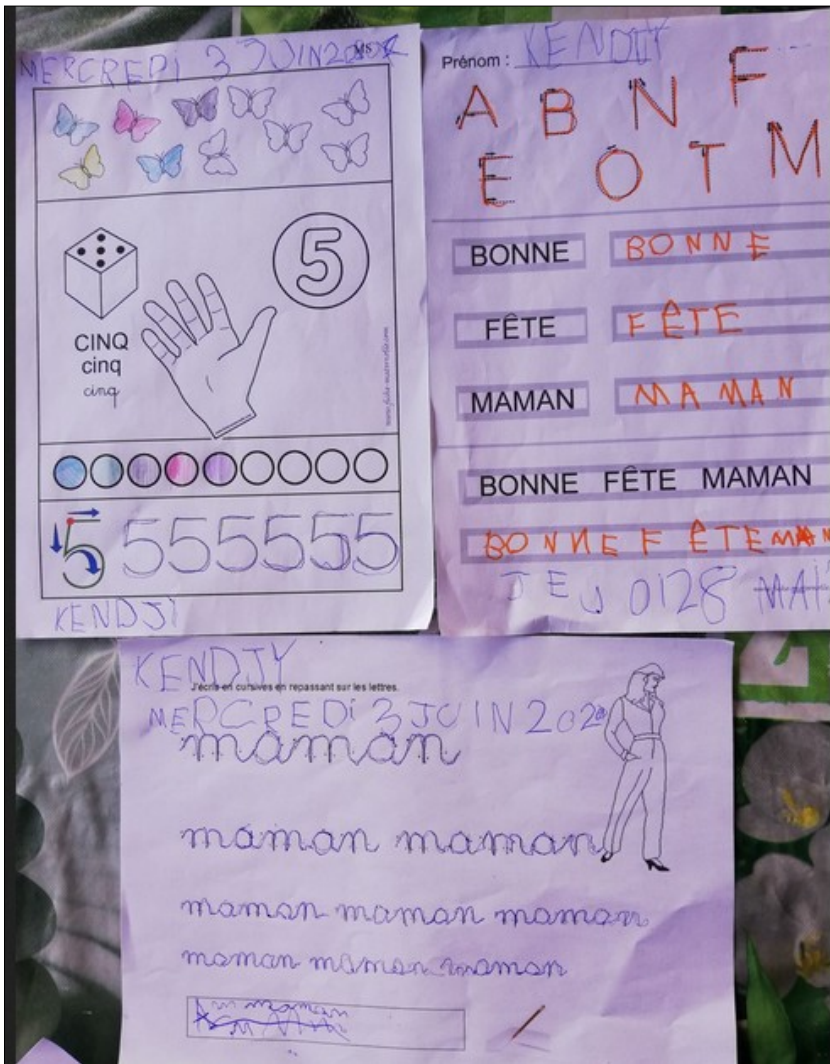 MERCREDI 3 JUIN
MS
5
CINQ
cinq
cinq
www.fiche-maternelle.com
5 5 5 5 5 5 5
KENDJi
Prénom : KENDJY
A B N F
E O T M
BONNE BONNE
FÊTE FÊTE
MAMAN MAMAN
BONNE FÊTE MAMAN
BONNE FÊTE
JEU 0128 MAI
KENDJY
J'écris en cursives en repassant sur les lettres.
MERCREDi 3 JUIN 202
maman
maman maman
maman maman maman
maman maman maman
maman